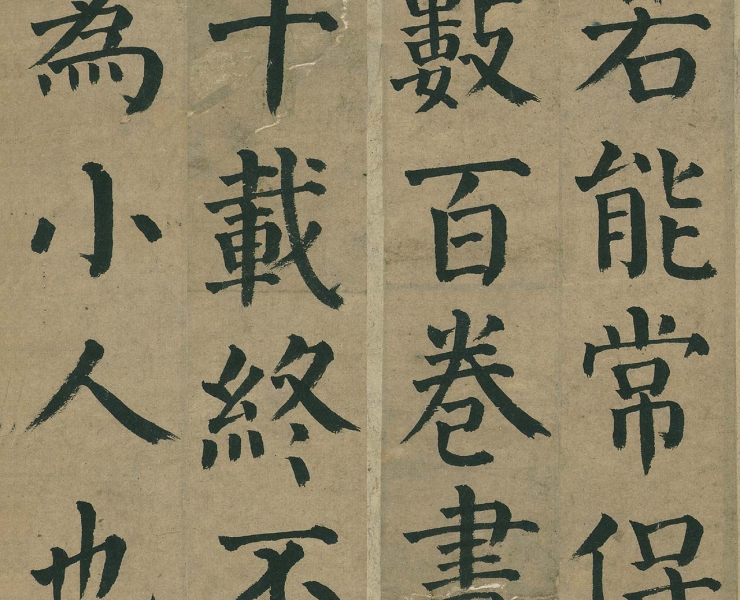 若能常保
數百卷書
十載終不
為小人也